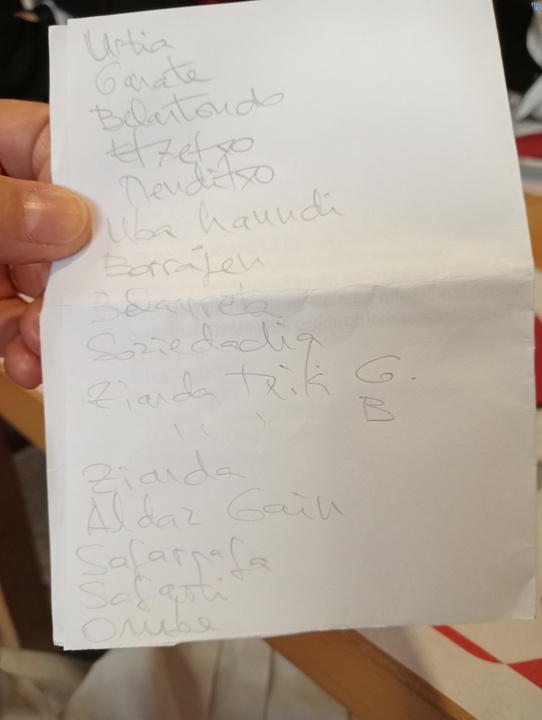 Urtia
Garate
Belartondo
Etzetxo
Menditxo
Uba haundi
Borrajen
Belaurreta
Soziedadia
Ziarda txiki G.
" " B
Ziarda
Aldaz Gain
Safarrafa
Safasti
Orube